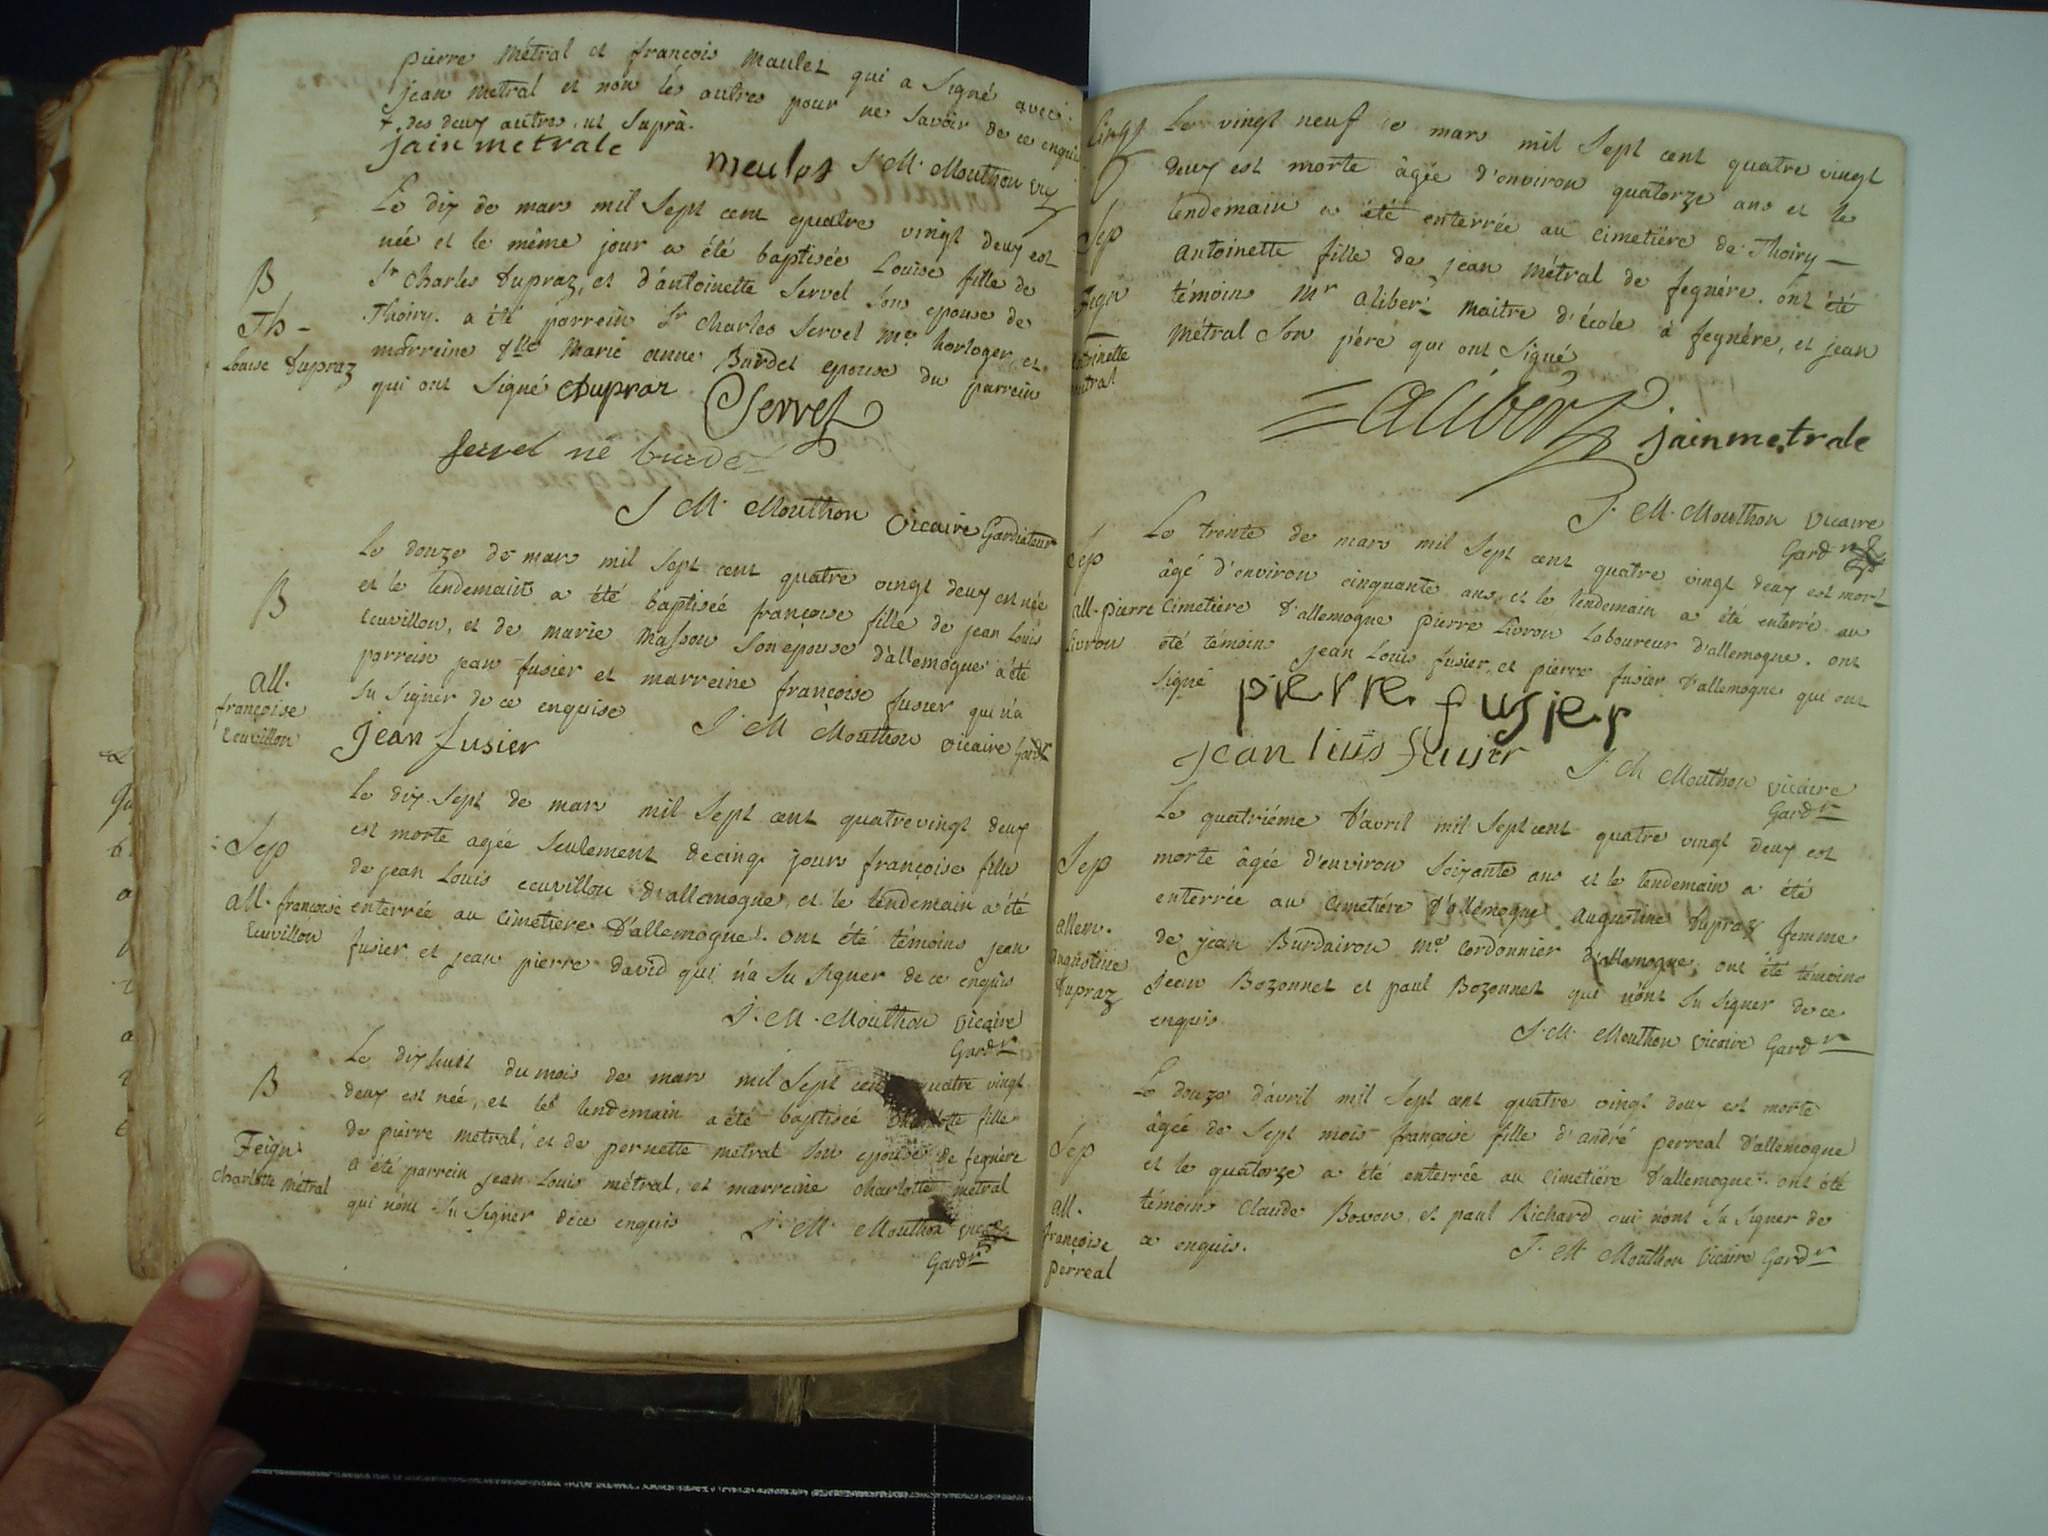 pierre Métral et françois Maulet qui a Signé avec
jean Metral et non les autres pour ne Savoir de ce enquis
+ des deux autres ut Suprà.
jain metrale
meulos J. M. Mouthon vic
Le dix de mars mil Sept cent quatre vingt deux est
née et le même jour a été baptisée Louise fille de
B
Sr Charles Dupraz, et d'antoinette Servel Son epouse de
Th -
Thoiry. a été parrein Sr Charles Servel Me horloger, et
Louise Dupraz
marreine dlle Marie anne Burdet epouse du parrein
qui ont Signé Dupraz Servel
servel né burdet
J M. Mouthon vicaire Gardiateur
Le douze de mars mil Sept cent quatre vingt deux est née
B
et le lendemain a été baptiseé françoise fille de jean Louis
Ecuvillon, et de marie Masson Son épouse d'allemogne a été
parrein jean fusier et marreine françoise fusier qui n'a
all.
françoise
Ecuvillon
Su Signer de ce enquise J. M Mouthon vicaire Gardr
Jean fusier
Le dix Sept de mars mil Sept cent quatrevingt deux
Sep
est morte agée Seulement decinq jours françoise fille
de jean Louis ecuvillon d'allemogne, et le lendemain a été
all. françoise
Ecuvillon
enterrée au cimetiere d'allemogne. ont été témoins jean
fusier et jean pierre david qui n'a Su signer de ce enquis
J. M. Mouthon vicaire
Gardr
Le dix huit du mois de mars mil Sept cent quatre vingt
B
deux est née, et le lendemain a été baptiseé Charlotte fille
de pierre metral, et de pernette metral Son epouse de fegnére
Feign.
Charlotte Métral
a été parrein jean Louis métral, et marreine charlotte metral
qui n'ont Su Signer dece enquis J. M. Mouthon
Gardr
Le vingt neuf de mars mil Sept cent quatre vingt
deux est morte âgée d'environ quatorze ans et le
Sep
lendemain a été enterrée au cimetiére de Thoiry —
antoinette fille de jean Métral de fegnére. ont été
Feign
témoins Mr alibert maitre d'école à fegnére, et jean
antoinette
metral
Métral Son pére qui ont Signé
aliber jainmetrale
J. M. Mouthon vicaire
Gardr
Le trente de mars mil Sept cent quatre vingt deux est mort
Sep
âgé d'environ cinquante ans, et le lendemain a été enterré au
all. pierre
Livron
Cimetiére d'allemogne pierre Livron Laboureur d'allemogne. ont
été témoins jean Louis fusier, et pierre fusier d'allemogne qui ont
Signé pierre fusier
jean luis fusier J. M Mouthon vicaire
Gardr
Le quatriéme d'avril mil Sept cent quatre vingt deux est
Sep
morte âgée d'environ Soixante ans et le lendemain a été
enterrée au Cimetiére d'allemogne augustine Dupraz femme
allem.
augustine
Dupraz
de jean Burdairon me Cordonnier d'allemogne, ont été témoins
jean Bozonnet et paul Bozonnet qui n'ont Su Signer de ce
enquis
J. M. Mouthon vicaire Gardr
Le douze d'avril mil Sept cent quatre vingt deux est morte
Sep
âgée de Sept mois françoise fille d'andré perreal d'allemogne
et le quatorze a été enterrée au Cimetiére d'allemogne. ont été
all.
françoise
perreal
témoins Claude Bovon, et paul Richard qui n'ont Su Signer de
ce enquis. J. M. Mouthon vicaire Gardr